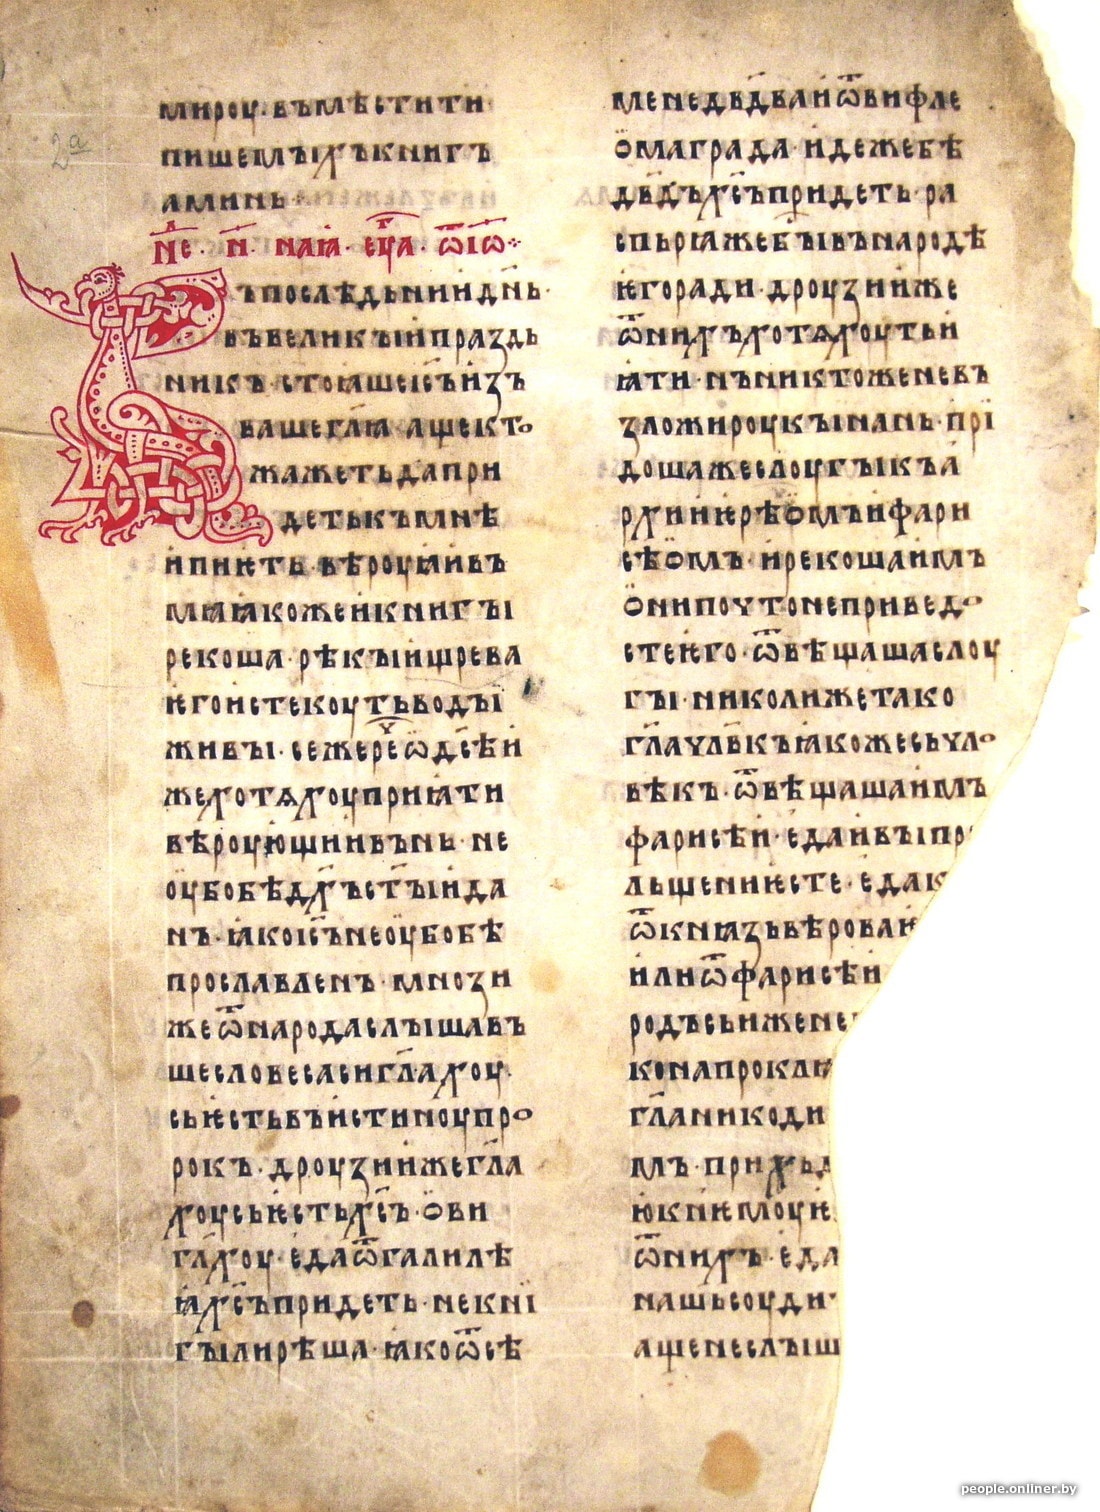 2а
мироу·въмѣстити
пишемыхъкнигъ
аминь·
не·н̄·ная·еуⷢ҇а·ѿіѡ·:·
Въпослѣдьниидн҃ь·
въвеликыипраздь
никъ·стоꙗшеіс҃ъизъ
вашегл҃ꙗ·ащекто
жажетьдапри
детькъмнѣ
ипиѥть·вѣроуꙗивъ
мѧꙗкожеѥкнигꙑ
рекоша·рѣкꙑищрева
ѥгоистекоуть·водꙑ
живꙑ·сежереⷱ҇ѡдс҃ѣи
жехотѧхоуприꙗти
вѣроующиивънь·не
оубобѣдх҃ъст҃ꙑида
нъ·ꙗкоіс҃ънеоубобѣ
прославленъ·мнози
жеѿнародаслꙑшавъ
шесловесасигл҃ахоу·
сьѥстьвъистиноупро
рокъ·дроузииже·гл҃а
хоусьѥстьх҃съ·ѻви
гл҃хоу·ѥдаѿгалилѣ
ꙗх҃съпридеть·некнї
гꙑлирѣша·ꙗкоѿсѣ
менедв҃двлаиѿвифле
ѻмаграда·идежебѣ
дв҃дъх҃съпридеть·ра
спьрꙗжебꙑвънародѣ
ѥгоради·дроузииже
ѿнихъхотѧхоутьи
ꙗти·нъникто женевъ
зложироукꙑнань·прї
дошажеслоугꙑкъа
рхииѥрѣѻмъифари
сѣѻмъ·ирекошаимъ
ѻнипочтонепривед
стеѥго·ѿвѣшашаслоу
гꙑ·николижетако
гл҃ачл҃вкъꙗкожесьчло
вѣкъ·ѿвѣшашаимъ
фарисѣи·ѥдаивꙑпр
льщениѥсте·ѥдак
ѿкнꙗзьвѣрова
илиѿфарисѣи
родъсьижене
конапрокл
гл҃аникоди
мъ·при
юкнѥмоу
ѿнихъ·ѥда
нашьсоуди·
ащенеслꙑш
people.onliner.by